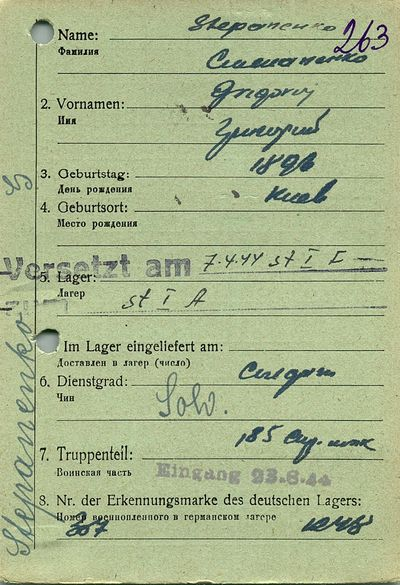 263
Name: Stepanenko
Фамилия
Степаненко
2. Vornamen: Grigorij
Имя
Григорий
3. Geburtstag: 18
День рождения
4. Geburtsort: Киев
Место рождения
Versetzt am 7.4.44 St I
5. Lager:
Лагер St I A
Im Lager eingeliefert am:
Доставлен в лагер (число)
6. Dienstgrad: Солдат
Чин Sold.
7. Truppenteil: 185
Воинская часть
Eingang 23.8.44
8. Nr. der Erkennungsmarke des deutschen Lagers:
Номер военнопленного в германском лагере
Stepanenko G